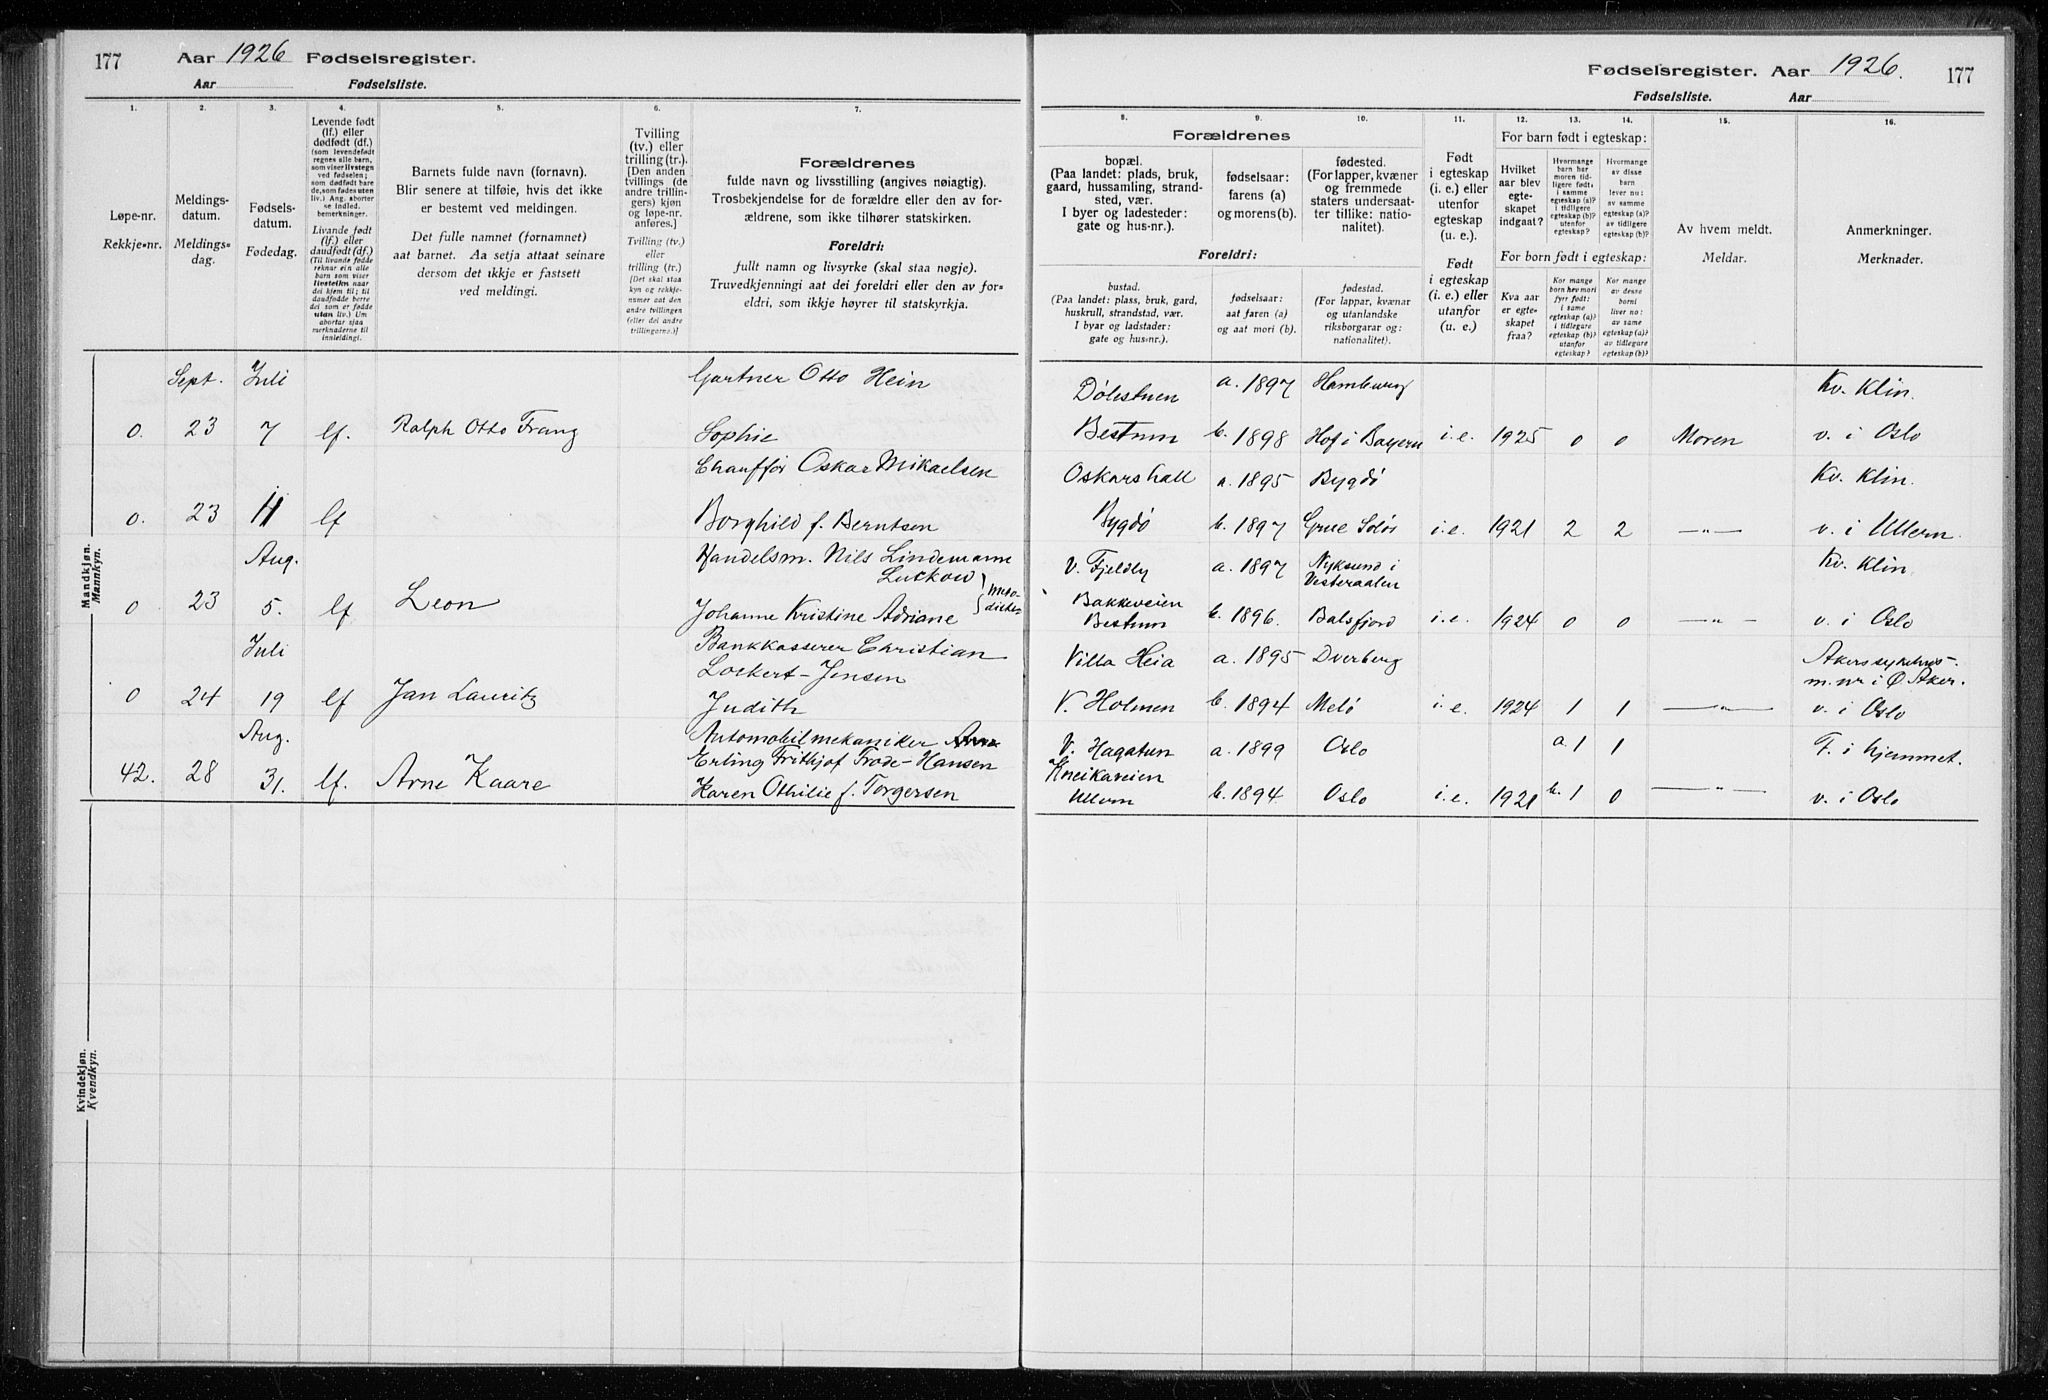 177 Aar 1926 Fødselsregister.
Aar Fødselsliste.
1. 2. 3. 4. 5. 6. 7.
Løpe-nr.
Rekkje-nr.
Meldings-
datum.
Meldings-
dag.
Fødsels-
datum.
Fødedag.
Levende født
(lf.) eller
dødfødt (df.)
(som levendefødt
regnes alle barn,
som viser livstegn
ved fødselen;
som dødfødt bare
de, som fødes uten
liv.) Ang. aborter
se indled.
bemerkninger.
Livande født
(lf.) eller
daudfødt (df.)
(Til livande fødde
reknar ein alle
barn som viser
livsteikn naar
dei kjem til; til
daudfødde berre
dei som er fødde
utan liv.) Um
abortar sjaa
merknaderne til
innleidingi.
Barnets fulde navn (fornavn).
Blir senere at tilføie, hvis det ikke
er bestemt ved meldingen.
Det fulle namnet (fornamnet)
aat barnet. Aa setja attaat seinare
dersom det ikkje er fastsett
ved meldingi.
Tvilling
(tv.) eller
trilling (tr.).
[Den anden
tvillings (de
andre trillin-
gers) kjøn
og løpe-nr.
anføres.]
Tvilling (tv.)
eller
trilling (tr.)
[Det skal staa
kyn og rekkje-
numser aat den
andre tvillingen
(eller dei andre
trillingarne.)]
Forældrenes
fulde navn og livsstilling (angives nøiagtig).
Trosbekjendelse for de forældre eller den av for-
ældrene, som ikke tilhører statskirken.
Foreldri:
fullt namn og livsyrke (skal staa nøgje).
Truvedkjenningi aat dei foreldri eller den av for-
eldri, som ikkje høyrer til statskyrkja.
Mandkjøn.
Mannkyn.
Sept. Juli Gartner Otto Hein
0. 23 7 lf. Ralph Otto Franz Sophie
Chauffør Oskar Mikaelsen
0. 23 11 lf Borghild f. Berntsen
Aug. Handelsm. Nils Lindemann
Luckow
0 23 5. lf Leon Johanne Kristine Adriane } Meto-
dister
Juli Bankkasserer Christian
Lockert-Jensen
0 24 19 lf Jan Lauritz Judith
Aug. Automobilmekaniker
Erling Frithjof Frode-Hansen
42. 28 31. lf. Arne Kaare Karen Othilie f. Torgersen
Kvindekjøn.
Kvendkyn.
Fødselsregister. Aar 1926. 177
Fødselsliste. Aar
8. 9. 10. 11. 12. 13. 14. 15. 16.
Forældrenes
bopæl.
(Paa landet: plads, bruk,
gaard, hussamling, strand-
sted, vær.
I byer og ladesteder:
gate og hus-nr.).
fødselsaar:
farens (a)
og morens (b).
fødested.
(For lapper, kvæner
og fremmede
staters undersaat-
ter tillike: natio-
nalitet).
Foreldri:
bustad.
(Paa landet: plass, bruk, gard,
huskrull, strandstad, vær.
I byar og ladstader:
gate og hus-nr.).
fødselsaar:
aat faren (a)
og aat mori (b).
fødestad.
(For lappar, kvænar
og utanlandske
riksborgarar og:
nationalitet).
Født
i egteskap
(i. e.) eller
utenfor
egteskap
(u. e.).
Født
i egteskap
(i. e.) eller
utanfor
(u. e.).
For barn født i egteskap:
Hvilket
aar blev
egte-
skapet
indgaat?
Hvormange
barn har
moren tid-
ligere født:
i samme
egteskap (a)?
i tidligere
egteskap (b)?
utenfor
egteskap?
Hvormange
av disse
barn
lever nu:
av samme
egteskap (a)?
av tidligere
egteskap (b)?
For born født i egteskap:
Kva aar
er egte-
skapet
fraa?
Kor mange
born hev mori
fyrr født:
i same
egteskap (a)?
i tidlegare
egteskap (b)?
utanfor
egteskap?
Kor mange
av desse
borni
liver no:
av same
egteskap (a)?
av tidlegare
egteskap (b)?
Av hvem meldt.
Meldar.
Anmerkninger.
Merknader.
Dølestuen a. 1897 Hamburg Kv. Klin.
Bestum b. 1898 Hof i Bayern i.e. 1925 0 0 Moren v. i Oslo
Oskarshall a. 1895 Bygdö Kv. Klin.
Bygdø b. 1897 Grue Solör i.e. 1921 2 2 —"— v. i Ullern.
V. Fjeldby a. 1897 Nyksund i
Vesteraalen Kv. Klin.
Bakkeveien
Bestum b. 1896. Balsfjord i.e. 1924 0 0 —"— v. i Oslo
Villa Heia a. 1895 Dverberg Akers sykehus-
m. nr i Ø. Aker.
V. Holmen b. 1894 Melö i.e. 1924 1 1 —"— v. i Oslo
V. Hagatun a. 1899 Oslo a. 1 1 F. i hjemmet.
Kneikaveien
Ullern b. 1894 Oslo i.e. 1921 b. 1 0 —"— v. i Oslo